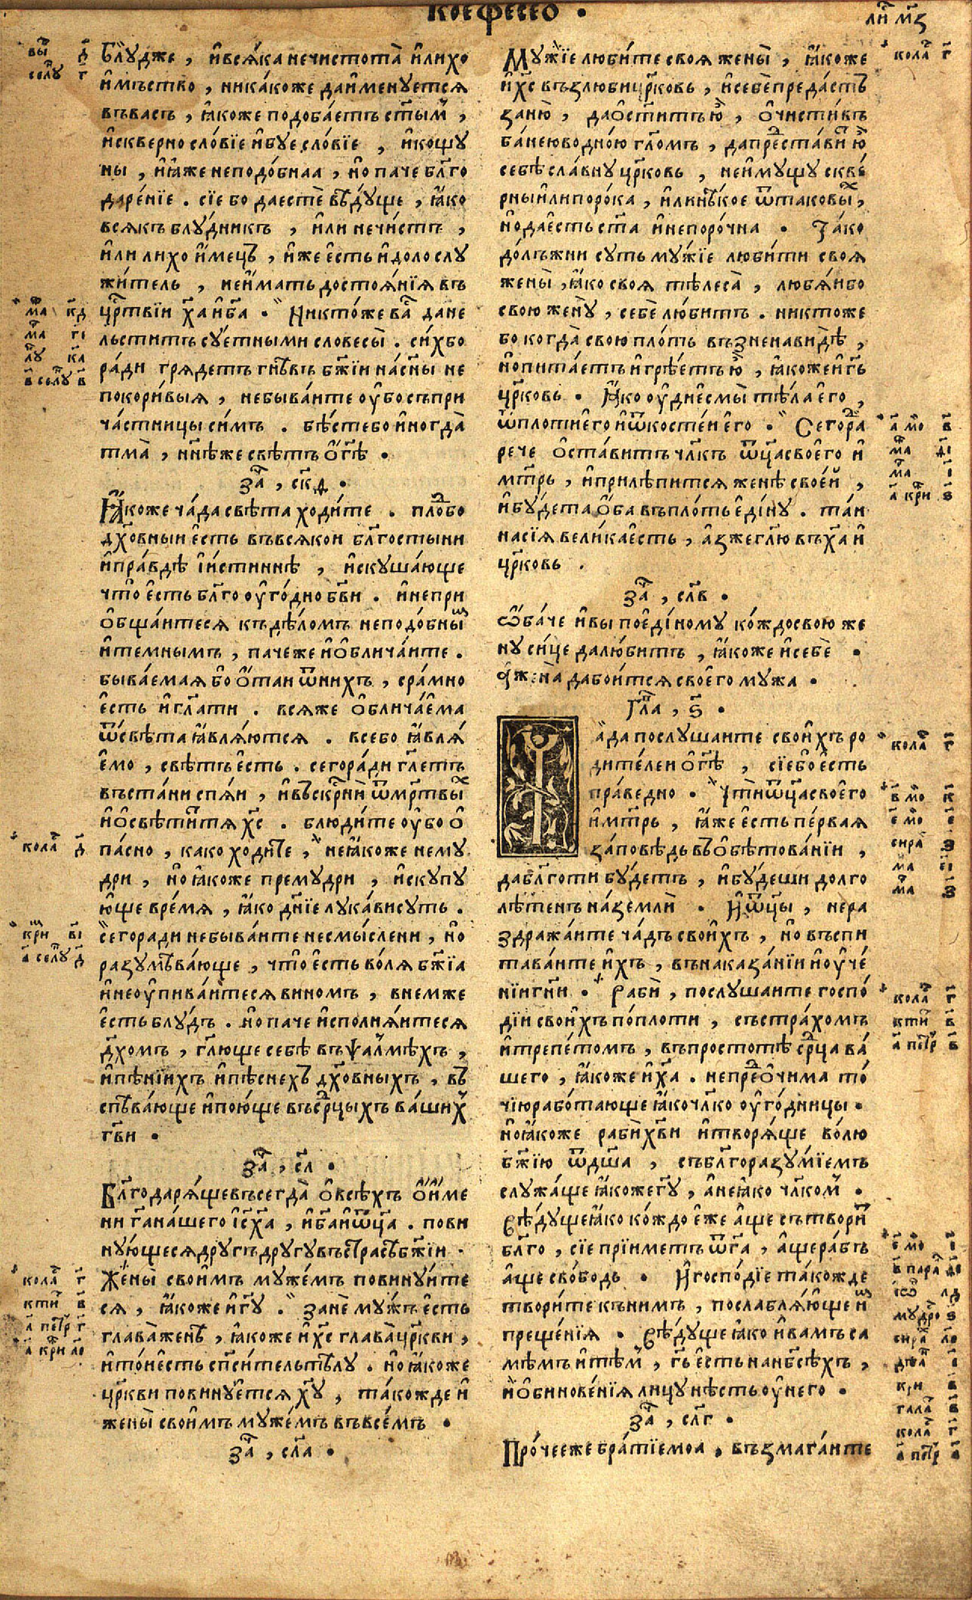 коефесео ·
ли҃ м҃з
Блуджє , ивсяка нечистота илихо
имъство , никакоже даименуется
въвасъ , ꙗкоже подобаетъ ст҃ым ,
искверно словїе ибуе словїе , икощу
ны , ꙗже неподобнаа , но паче бл҃го
дарєнїе . сїе бо даесте вѣдуще , ꙗко
всякъ блудникъ , или нечистъ ,
или лихо имецъ , иже есть идолослу
житель , неимать достоянїя въ
цр҃твїи х҃а иб҃а · Никтоже ва дане
льститъ суетными словесы . сихбо
ради грядетъ гнѣвъ бж҃їи насн҃ы не
покоривыя , небываите оубосъпри
частницы симъ . бѣстебо иногда
тма , нн҃ѣже свѣтъ ог҃ѣ ·
за҃ , скд ·
Ꙗкоже чада свѣта ходите . плобо
дх҃овныи есть въвсякои бл҃гостыни
иправдѣ їистиннѣ , искушающе
что есть бл҃го оугодно бг҃ви . инепри
общаитеся къ дѣломъ неподобны
итемнымъ , паче же иобличаите .
бываемая бо отаи ѿнихъ , срамно
есть игл҃ати . вся же обличаема
ѿсвѣта ꙗвляются . все бо ꙗвля
емо , свѣтъ есть . сегоради гл҃етъ
въстани спяи , ивъскр҃ни ѿмр҃твы
иосвѣтитя х҃с . блюдите оубо о
пасно , како ходите , неꙗкоже нему
дри , но ꙗкоже премудри , искупу
юще время , ꙗко днїе лукависуть .
сегоради небываите несмыслени , но
разумѣвающе , что есть воля бж҃їа
инеоупиваитеся виномъ , внемже
есть блудъ . но паче исполняитеся
дх҃омъ , гл҃юще себѣ въѱалмѣхъ ,
ипѣнїихъ ипѣснехъ дх҃овныхъ , въ
спѣвающе ипоюще въср҃цыхъ ваших
гв҃и ·
за҃ , сл҃ ·
Благодарящевъсегда овсѣхъ оиме
ни г҃а нашего іс҃х҃а , иб҃а иѿц҃а . пови
нующеся другъ другу въстрасѣ бж҃їи ·
Жены своимъ мужемъ повинуите
ся , ꙗкоже иг҃у . Зане мужъ есть
глава женѣ , ꙗкоже их҃с глава цр҃кви ,
итои есть сп҃ситель тѣлу . но ꙗкоже
цр҃кви повинуется х҃у , такожде и
жены своимъ мужемъ въвсемъ ·
за҃ , сл҃а ·
Мужїе любите своя жены , ꙗкоже
их҃с възлюби цр҃ковь , исебе предастъ
заню , даоститъю , очистивъ
банею водною гл҃омъ , дапредстави ю
себѣ славну цр҃ковь , неимущу скве
рны или порока , или нѣкое ѿтаковы ,
но даесть ст҃а инепорочна · Тако
должни суть мужїе любити своя
жены , ꙗко своя тѣлеса , любяибо
свою жену , себе любитъ . никтоже
бо когда свою плоть възненавидѣ ,
но питаетъ игрѣетъ ю , ꙗкоже иг҃ь
цр҃ковь · Ꙗко оудиесмы тѣла его ,
ѿплоти его иѿкостеи его · Сегора
рече оставитъ чл҃къ ѿц҃а своего и
мт҃рь , иприлѣпится женѣ своеи ,
ибудета оба въплоть едіну . таи
на сїя велика есть , азже гл҃ю въх҃а и
цр҃ковь .
за҃ , сл҃в ·
Ѿбаче ивы поедіному кождо свою же
ну сице далюбитъ , ꙗкоже исебе ·
жена дабоится своего мужа ·
гл҃а , ѕ҃ ·
ада послушаите своихъ ро
дителеи ог҃ѣ , сїебо есть
праведно · Чти ѿц҃а своего
имт҃рь , ꙗже есть первая
заповѣдь въобѣтованїи ,
дабл҃го ти будетъ , ибудеши долго
лѣтенъ наземли · Иѿц҃ы , нера
здражаите чадъ своихъ , но въспи
таваите ихъ , въ наказанїи иоуче
нїи гн҃и · Раби , послушаите госпо
дїи своихъ поплоти , състрахомъ
итрепетомъ , въпростотѣ ср҃ца ва
шего , ꙗкоже их҃а . непредочима то
чїю работающе ꙗко чл҃ко оугодницы .
но ꙗкоже раби х҃ви итворяще волю
бж҃їю ѿдш҃а , съ бл҃горазумїемъ
служаще ꙗкоже г҃у , а не ꙗко чл҃ком ·
Вѣдуще ꙗко кождо еже аще сътвори
бл҃го , сїе прїиметъ ѿг҃а , аще рабъ
аще свободь · Игосподїе такожде
творите книмъ , послабляюще и
прещенїя · Вѣдуще ꙗко ивамъ са
мѣмъ итѣм , г҃ь есть на нб҃сѣхъ ,
иобиновенїя лицу нѣсть оу него ·
за҃ , сл҃г ·
Прочее же братїе моа , възмагаите